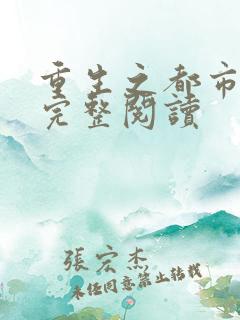 重生之都市
完整閱讀
張宏杰
未經同意禁止轉載